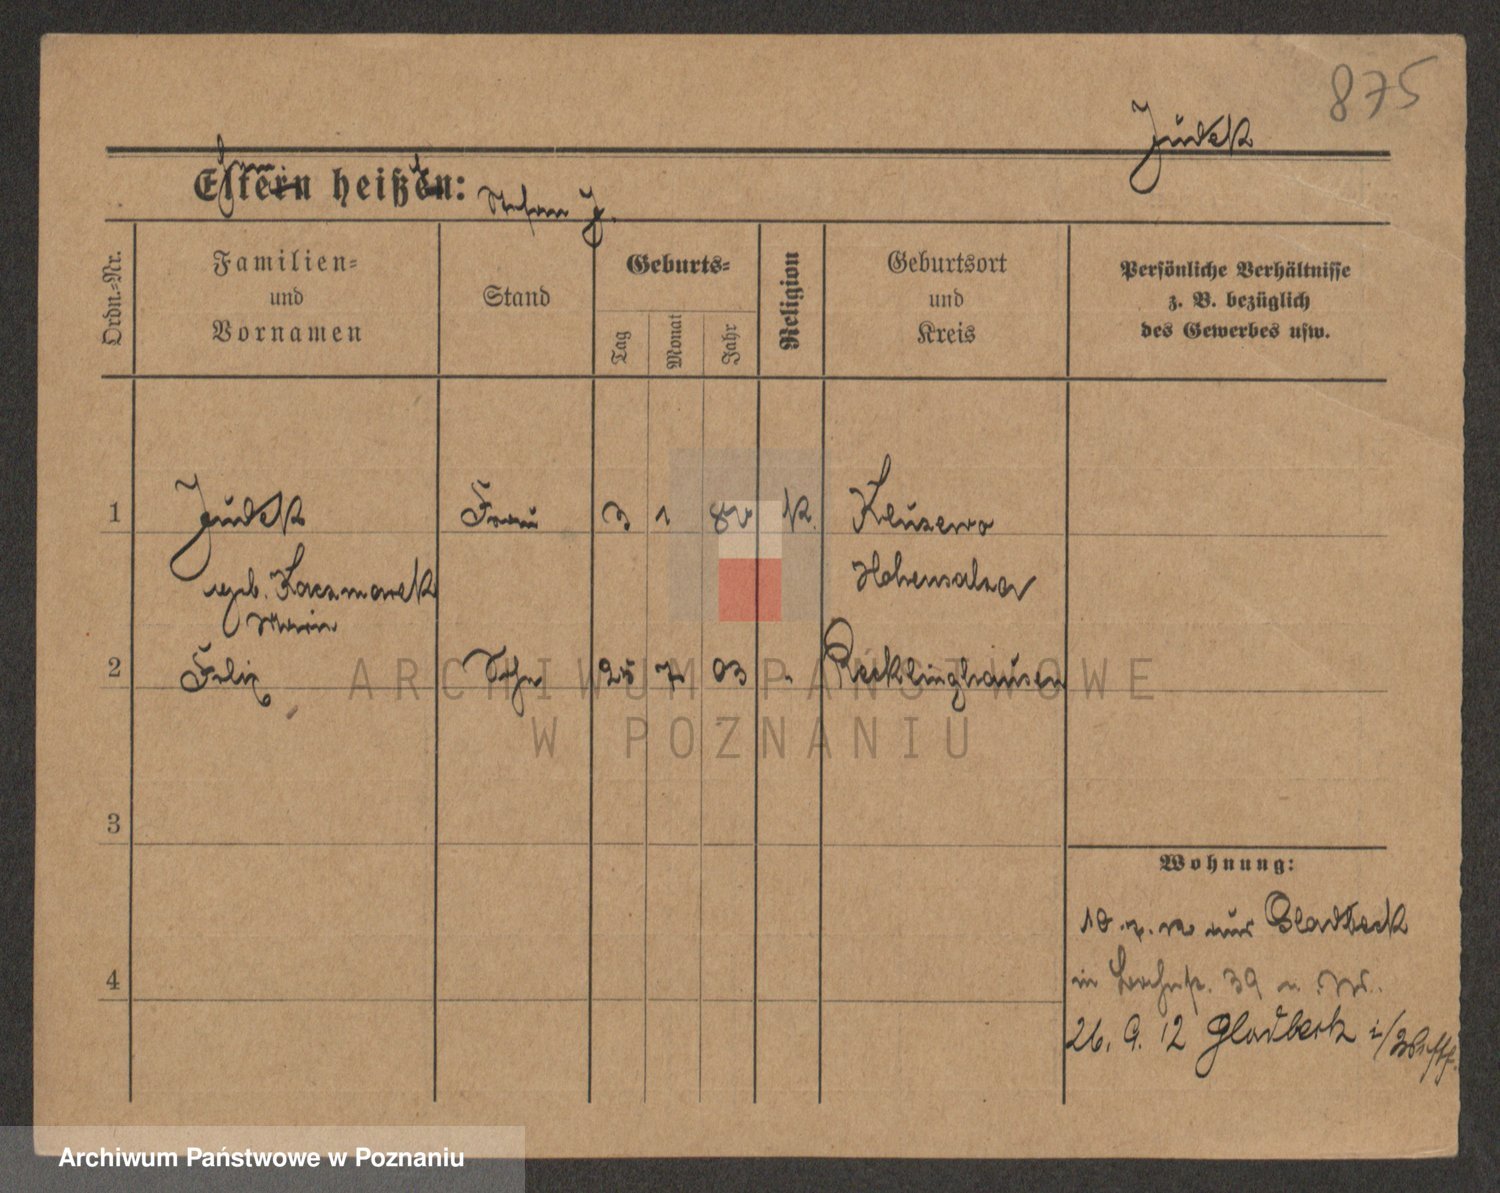 875
Judek
Eltern heißen: Stefan J.
Ordn.=Nr.
Familien=
und
Vornamen
Stand
Geburts=
Tag
Monat
Jahr
Religion
Geburtsort
und
Kreis
Persönliche Verhältnisse
z. B. bezüglich
des Gewerbes usw.
1 Judek Frau 3 1 80 K.
geb. Kaczmarek Hohensalza
Maria
2 Felix Sohn 25 7 03 " Recklinghausen
3
4
Wohnung:
aus Gladbeck
in 39
26. 9. 12 Gladbeck i/Westf.
ARCHIWUM PAŃSTWOWE
W POZNANIU
Archiwum Państwowe w Poznaniu